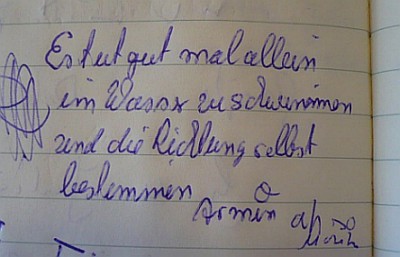 Es tut gut mal allein
im Wasser zu schwimmen
und die Richtung selbst
bestemmen
Armin